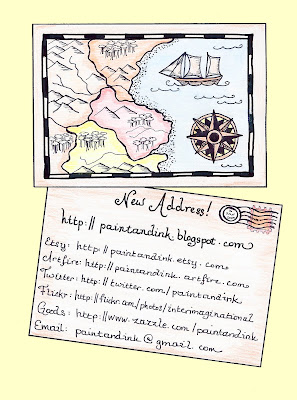 New Address!
http:// paintandink.blogspot.com
Etsy: http://paintandink.etsy.com
Artfire: http://paintandink.artfire.com
Twitter: http://twitter.com/paintandink
Flickr: http://flickr.com/photos/interimaginational
Goods: http://www.zazzle.com/paintandink
Email: paintandink@gmail.com